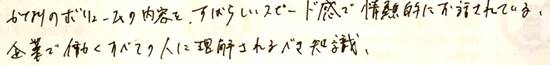 かなりのボリュームの内容を、すばらしいスピード感で情熱的にお話されている。
企業で働くすべての人に理解されるべき知識、